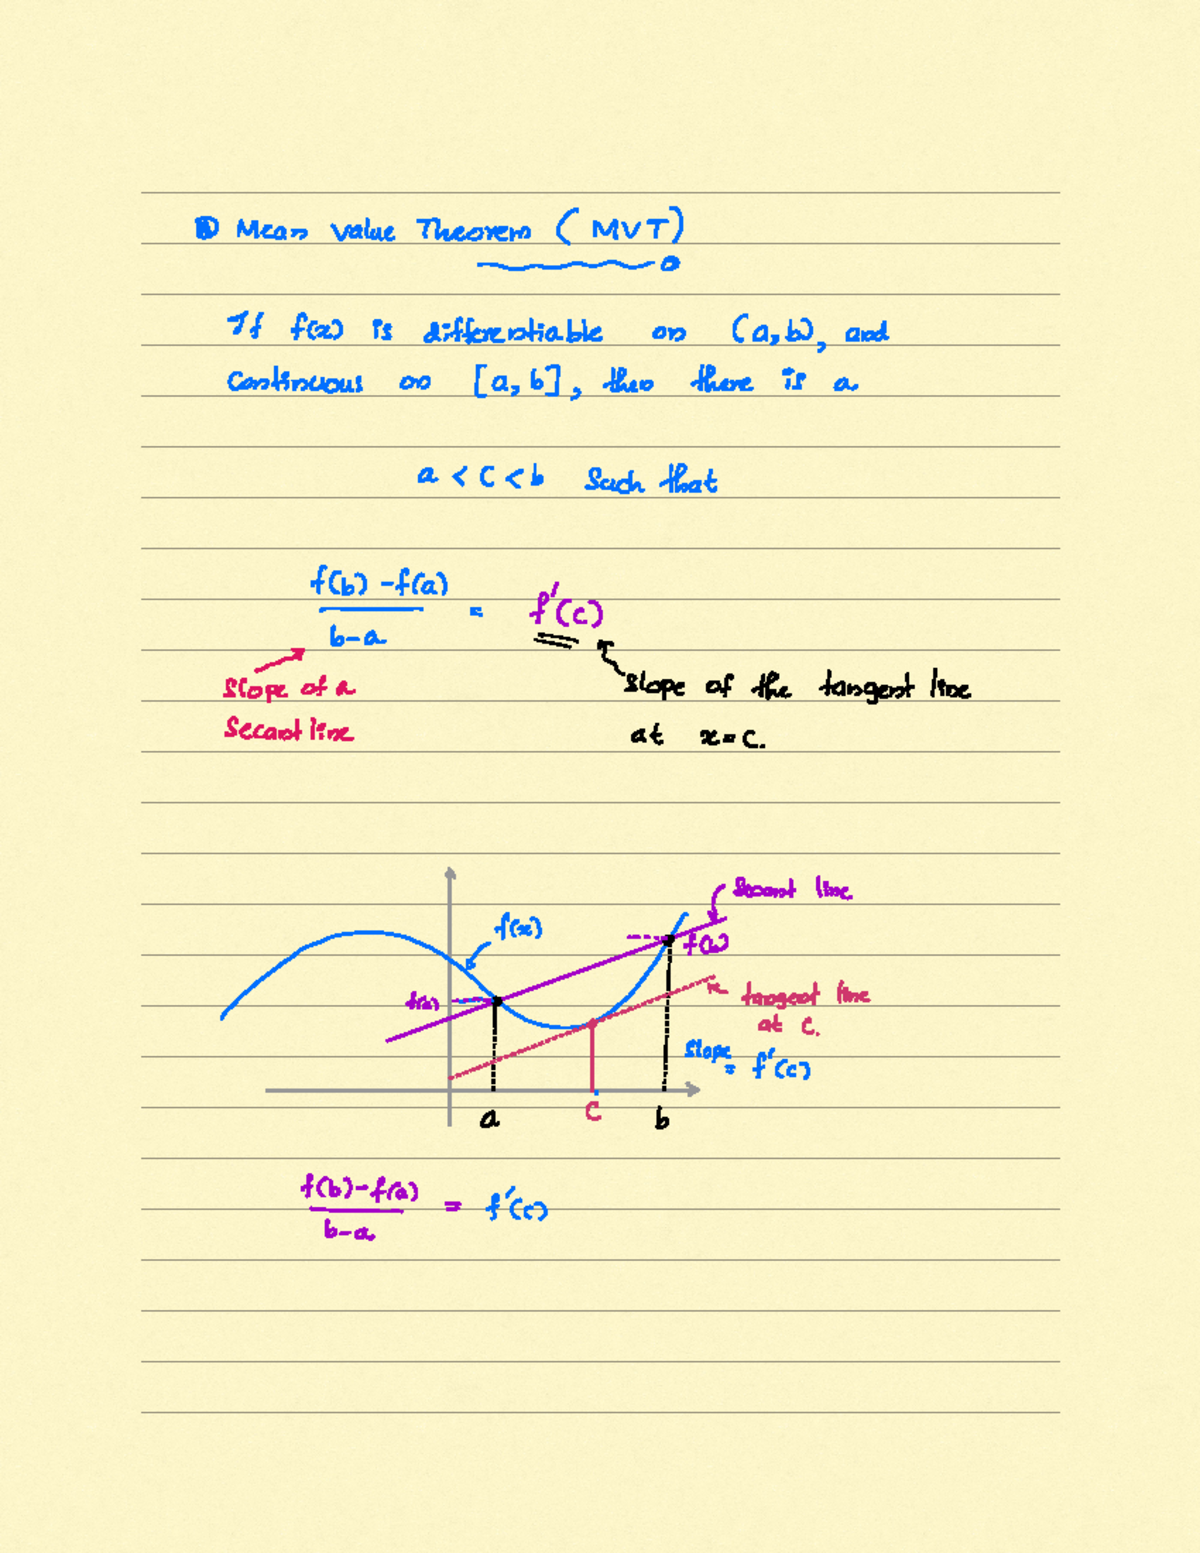 Mean Value Theorem (MVT)
If f(x) is differentiable on (a,b), and
continuous on [a,b], then there is a
a < c < b such that
f(b) - f(a)
b-a
=
f'(c)
Slope of a
Secant line
Slope of the tangent line
at x=c.
Secant line
f(x)
f(b)
f(a)
tangent line
at c.
Slope
= f'(c)
a
c
b
f(b)-f(a)
b-a
= f'(c)